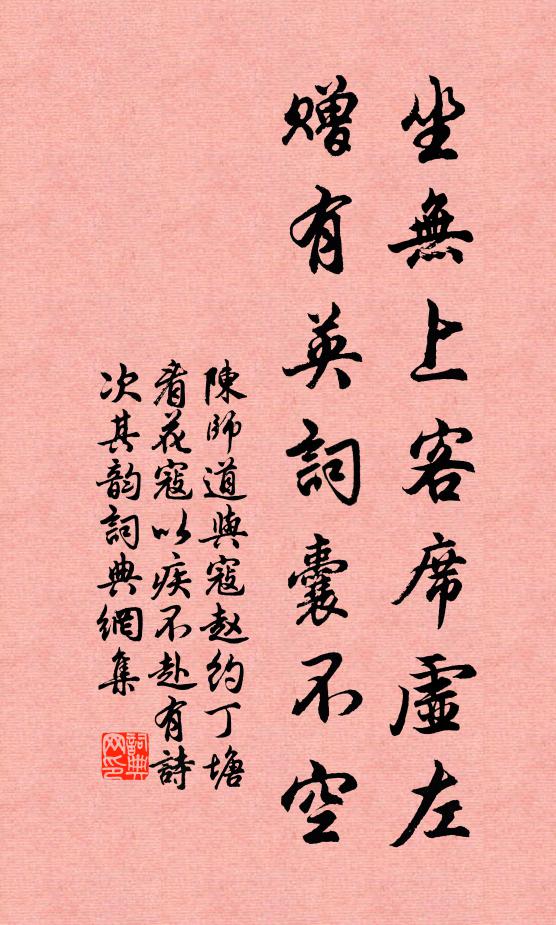 坐無上客席虛左
贈有英詞囊不空
陳師道與寇赵約丁塘
看花寇以疾不赴有詩
次其韵詞典網集
詞典网印